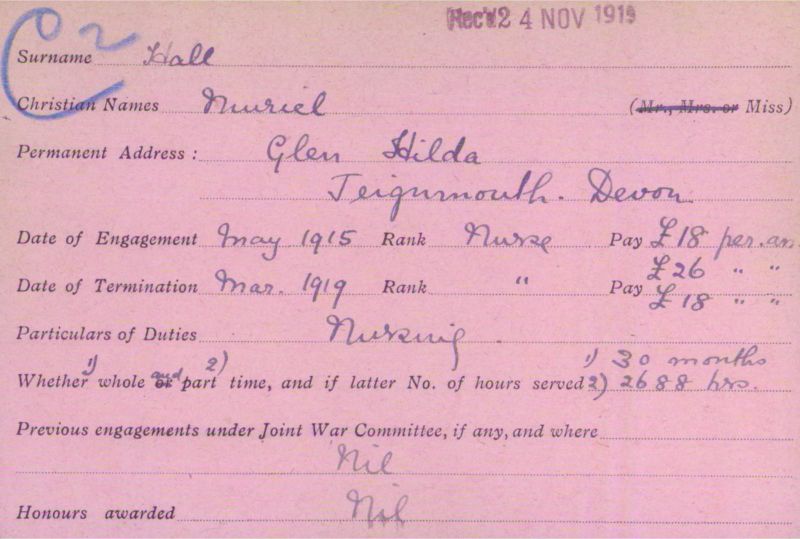 Rec'd 24 NOV 1919
C2
Surname Hall
Christian Names Muriel (Mr., Mrs. or Miss)
Permanent Address: Glen Hilda
Teignmouth. Devon
Date of Engagement May 1915 Rank Nurse Pay £18 per. an
£26 " "
Date of Termination Mar. 1919 Rank " Pay £18 " "
Particulars of Duties Nursing.
1) 2) 1) 30 months
Whether whole or and part time, and if latter No. of hours served 2) 2688 hrs.
Previous engagements under Joint War Committee, if any, and where
Nil
Honours awarded Nil